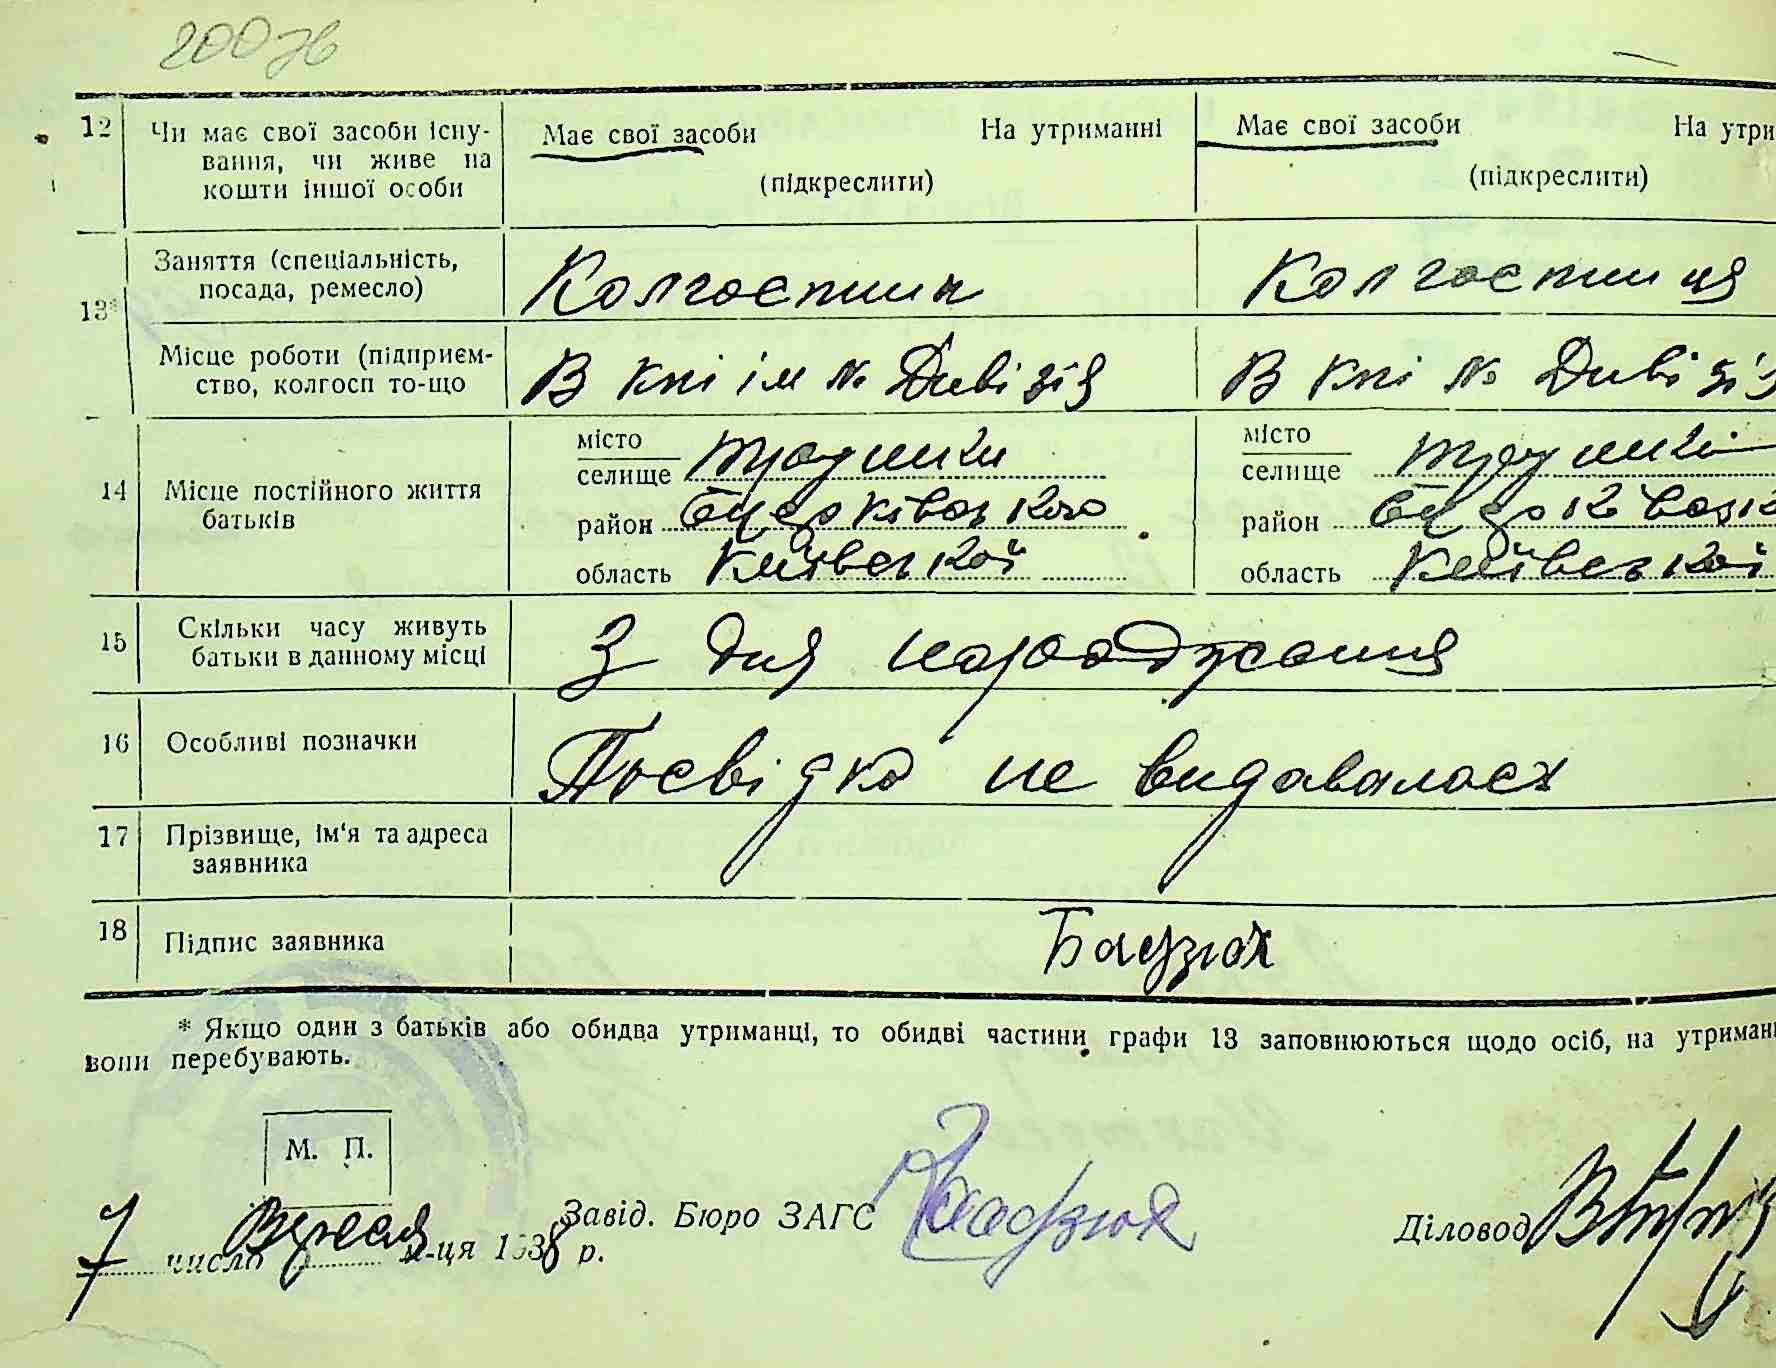 200зв
12 Чи має свої засоби існу-
вання, чи живе на
кошти іншої особи
Має свої засоби На утриманні
(підкреслити)
Має свої засоби На утри
(підкреслити)
13* Заняття (спеціальність,
посада, ремесло)
Колгоспник
Колгоспниця
Місце роботи (підприєм-
ство, колгосп то-що
В кні ім № Дивізія
В кні № Дивізія
14 Місце постійного життя
батьків
місто
селище
район
область Київської
місто
селище
район
область Київської
15 Скільки часу живуть
батьки в данному місці
З дня народження
16 Особливі позначки
Посвідка не видавалась
17 Прізвище, ім'я та адреса
заявника
18 Підпис заявника
* Якщо один з батьків або обидва утриманці, то обидві частини графи 13 заповнюються щодо осіб, на утриманн
вони перебувають.
М. П.
7 число Вересня м-ця 1938 р.
Завід. Бюро ЗАГС
Діловод